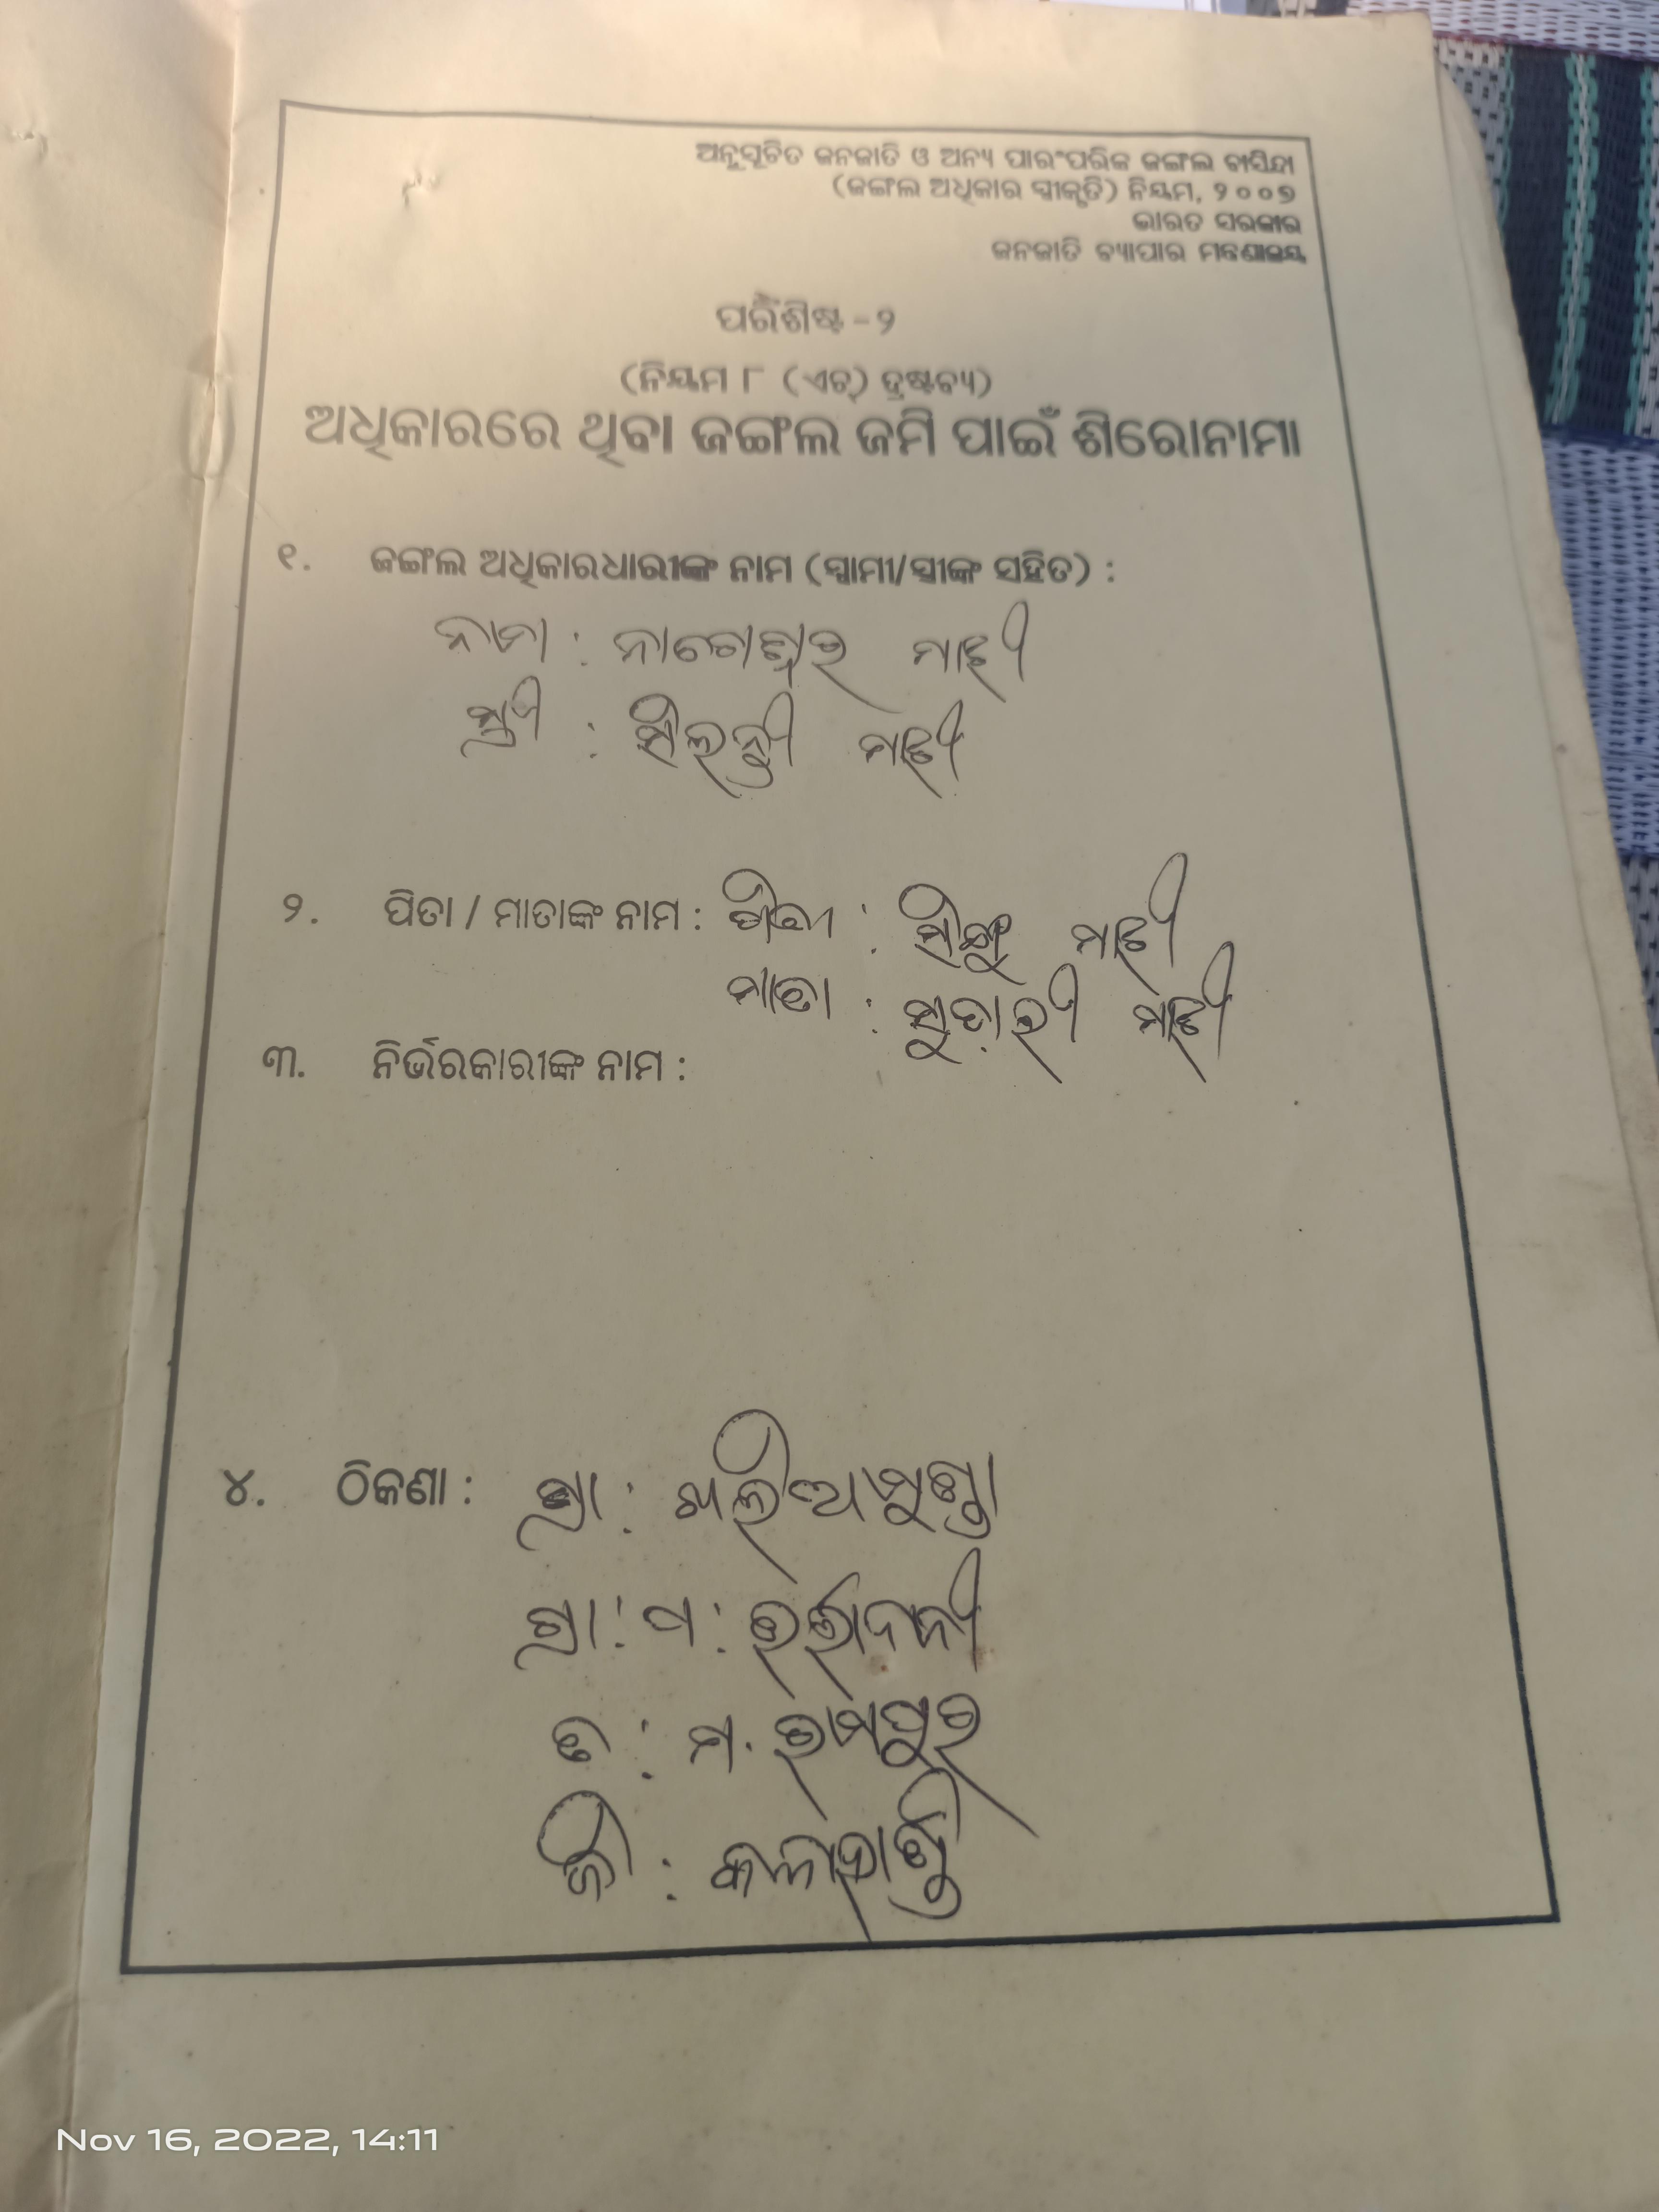 ଅନୁସୂଚିତ ଜନଜାତି ଓ ଅନ୍ୟ ପାରଂପରିକ ଜଙ୍ଗଲ ବାସିନ୍ଦା
(ଜଙ୍ଗଲ ଅଧିକାର ସ୍ୱୀକୃତି) ନିୟମ, ୨୦୦୭
ଭାରତ ସରକାର
ଜନଜାତି ବ୍ୟାପାର ମନ୍ତ୍ରଣାଳୟ
ପରିଶିଷ୍ଟ - ୨
(ନିୟମ ୮ (ଏଚ୍) ଦ୍ରଷ୍ଟବ୍ୟ)
ଅଧିକାରରେ ଥିବା ଜଙ୍ଗଲ ଜମି ପାଇଁ ଶିରୋନାମା
୧. ଜଙ୍ଗଲ ଅଧିକାରଧାରୀଙ୍କ ନାମ (ସ୍ୱାମୀ/ସ୍ତ୍ରୀଙ୍କ ସହିତ) :
ନାମ : ମାଝୀ
ସ୍ତ୍ରୀ : ମାଝୀ
୨. ପିତା / ମାତାଙ୍କ ନାମ : ପିତା : ମାଝୀ
ମାତା : ମାଝୀ
୩. ନିର୍ଭରକାରୀଙ୍କ ନାମ :
୪. ଠିକଣା : ଗ୍ରା :
ଗ୍ରା : ପ :
ତ : ମ. ରାମପୁର
ଜି : କଳାହାଣ୍ଡି
Nov 16, 2022, 14:11